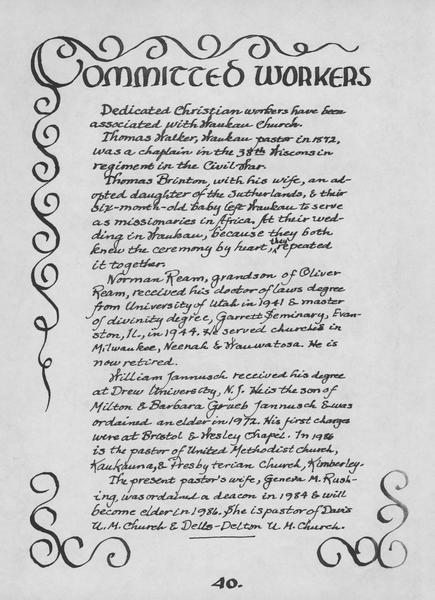 Committed Workers
Dedicated Christian workers have been
associated with Waukau Church.
Thomas Walker, Waukau pastor in 1872,
was a chaplain in the 38th Wisconsin
regiment in the Civil War.
Thomas Brinton, with his wife, an ad-
opted daughter of the Sutherlands, & their
six-month-old baby left Waukau to serve
as missionaries in Africa. At their wed-
ding in Waukau, because they both
knew the ceremony by heart, they repeated
it together.
Norman Ream, grandson of Oliver
Ream, received his doctor of laws degree
from University of Utah in 1941 & master
of divinity degree, Garrett Seminary, Evan-
ston, IL, in 1944. He served churches in
Milwaukee, Neenah & Wauwatosa. He is
now retired.
William Jannusch received his degree
at Drew University, N.J. He is the son of
Milton & Barbara Grueb Jannusch & was
ordained an elder in 1972. His first charges
were at Bristol & Wesley Chapel. In 1986
is the pastor of United Methodist church,
Kaukauna, & Presbyterian Church, Kimberley.
The present pastor's wife, Geneva M. Rush-
ing, was ordained a deacon in 1984 & will
become elder in 1986. She is pastor of Davis
U.M. Church & Dells-Delton U.M. Church.
40.